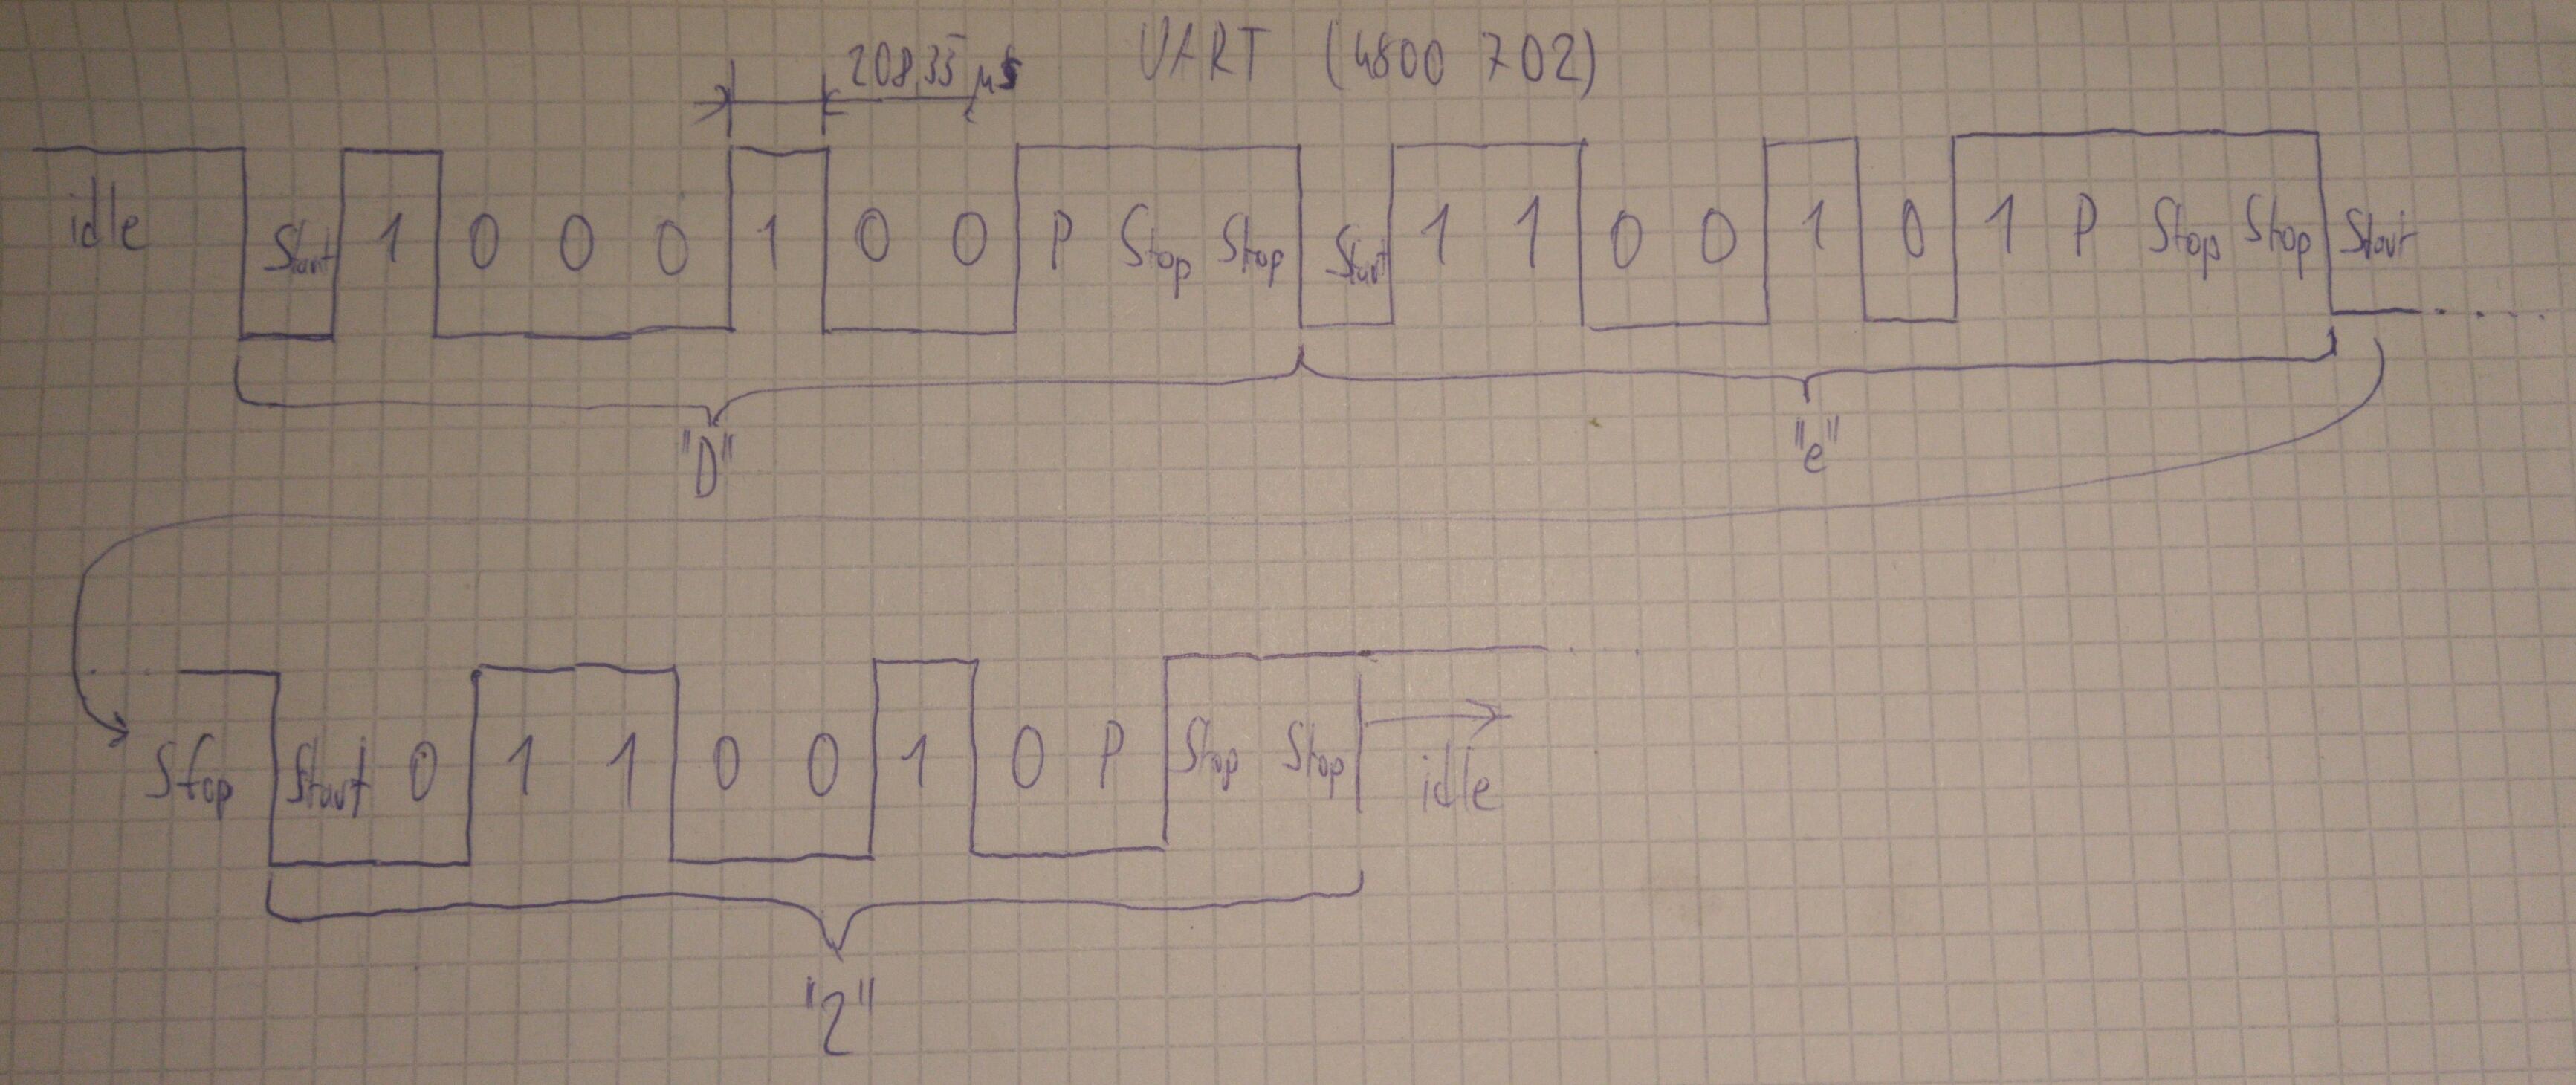 208,35 µs UART (4800 7O2)
idle Start 1 0 0 0 1 0 0 P Stop Stop Start 1 1 0 0 1 0 1 P Stop Stop Start
"D" "e"
Stop Start 0 1 1 0 0 1 0 P Stop Stop idle
"2"